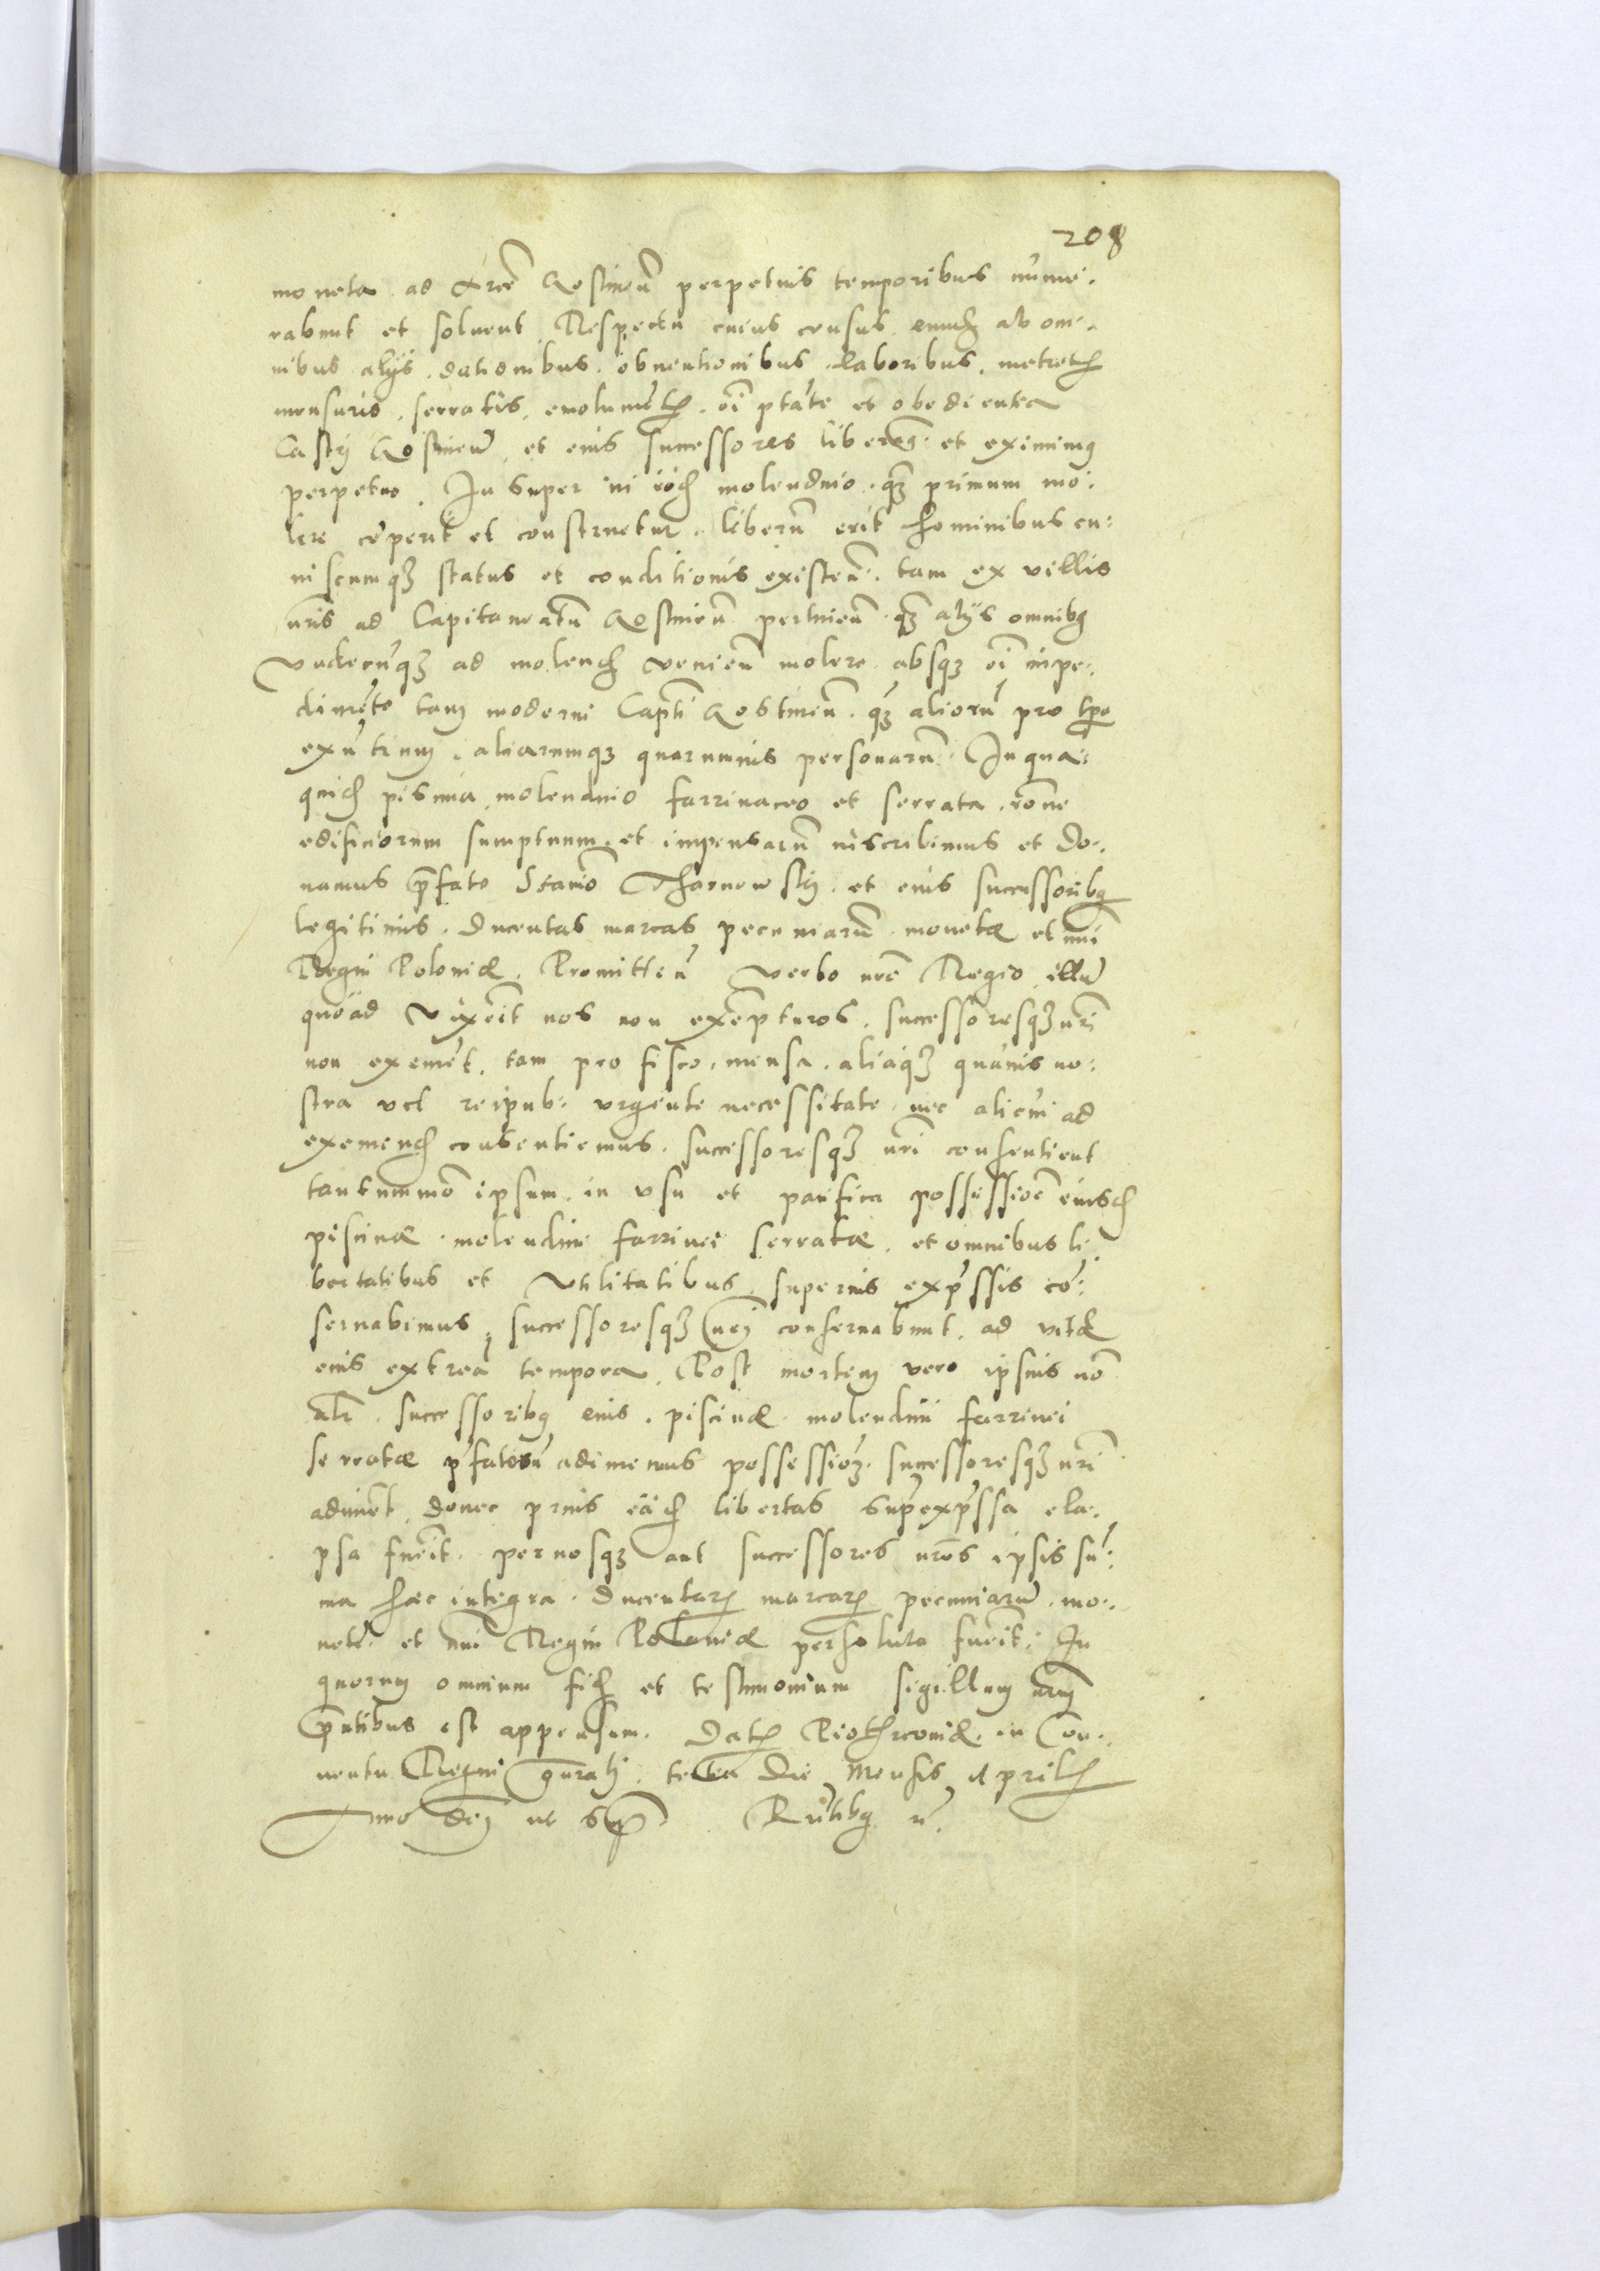 208
moneta ad Arcē Gostineñ perpetuis temporibus nume.
rabunt et soluent Respectu cuius census eundẽ ab om.
nibus alijs dationibus. obuentionibus laboribus. metretis
mensuris. serratis. emolumẽtis. oĩ ptãte et obedientia
Castri Gostineñ. et eius successores liberamus et eximimus
perpetuo. Insuper in eodẽ molendino. qz primum mo:
lere ceperit et construetur. liberũ erit hominibus cu:
iuscumqz status et conditionis existeñ. tam ex villis
nr̃is ad Capitaneatũ Gostineñ pertineñ qz alijs omnibus
vndecũqz ad molendũ venieñ molere absqz oĩ impe:
dimẽto tam moderni Captĩ Gostineñ. qz aliorũ pro tpe
exñtium. aliarumqz quarumuis personarũ. In qua:
quidẽ piscina molendino farrinaceo et serrata. rõne
edificiorum sumptuum. et impensarũ inscribimus et do:
namus p̃fato Stanĩo Tharnowskj. et eius successoribus
legitimis. Ducentas marcas pecuniarũ. monetæ et nũi
Regni Poloniæ. Promitteñ verbo nr̃o Regio illũ
quoad vixerit nos non exempturos. successoresqz nr̃i
non exemẽt. tam pro fisco. mensa. aliaqz quauis no:
stra vel reipub: vrgente necessitate. nec alicui ad
exemendũ consentiemus. successoresqz nr̃i consentient
tantummõ ipsum in vsu et pacifica possessiõe eiusdẽ
piscinæ molendini farrinei serratæ. et omnibus li
bertatibus et vtilitatibus superius exp̃ssis cõ:
seruabimus, successoresqz nr̃i conseruabunt. ad vitæ
eius extrea tempora. Post mortem vero ipsius nõ
alr̃. successoribus eius. piscinæ molendini farrinei
serratæ p̃fatorũ adimemus possessioẽ. successoresqz nr̃i
adimẽt. donec prius eadẽ libertas sup̃exp̃ssa ela.
psa fuerit. per nosqz aut successores nr̃os ipsis sũ:
ma hæc integra. Ducentarũ marcarũ pecuniarũ. mo:
netæ. et nũi Regni Poloniæ persoluta fuerit: In
quorum omnium fidẽ et testimonium sigillum nr̃m
p̃ntibus est appensum. Datũ Piotrcouiæ. in Con:
uentu Regni gñrali. tertia die Mensis Aprilis
Anno dñi ut sup̃